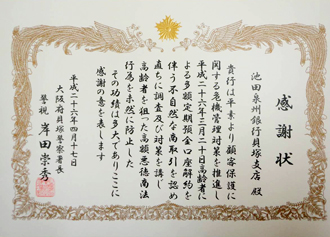 感謝状
池田泉州銀行貝塚支店 殿
貴行は平素より顧客保護に
関する危機管理対策を推進し
平成二十六年三月二十日高齢者に
よる多額定期預金口座解約を
伴う不自然な商取引を認め
直ちに調査及び対策を講じ
高齢者を狙った高額悪徳商法
行為を未然に防止した
その功績は多大でありここに
感謝の意を表します
平成二十六年四月十七日
大阪府貝塚警察署長
警視 岸田崇秀